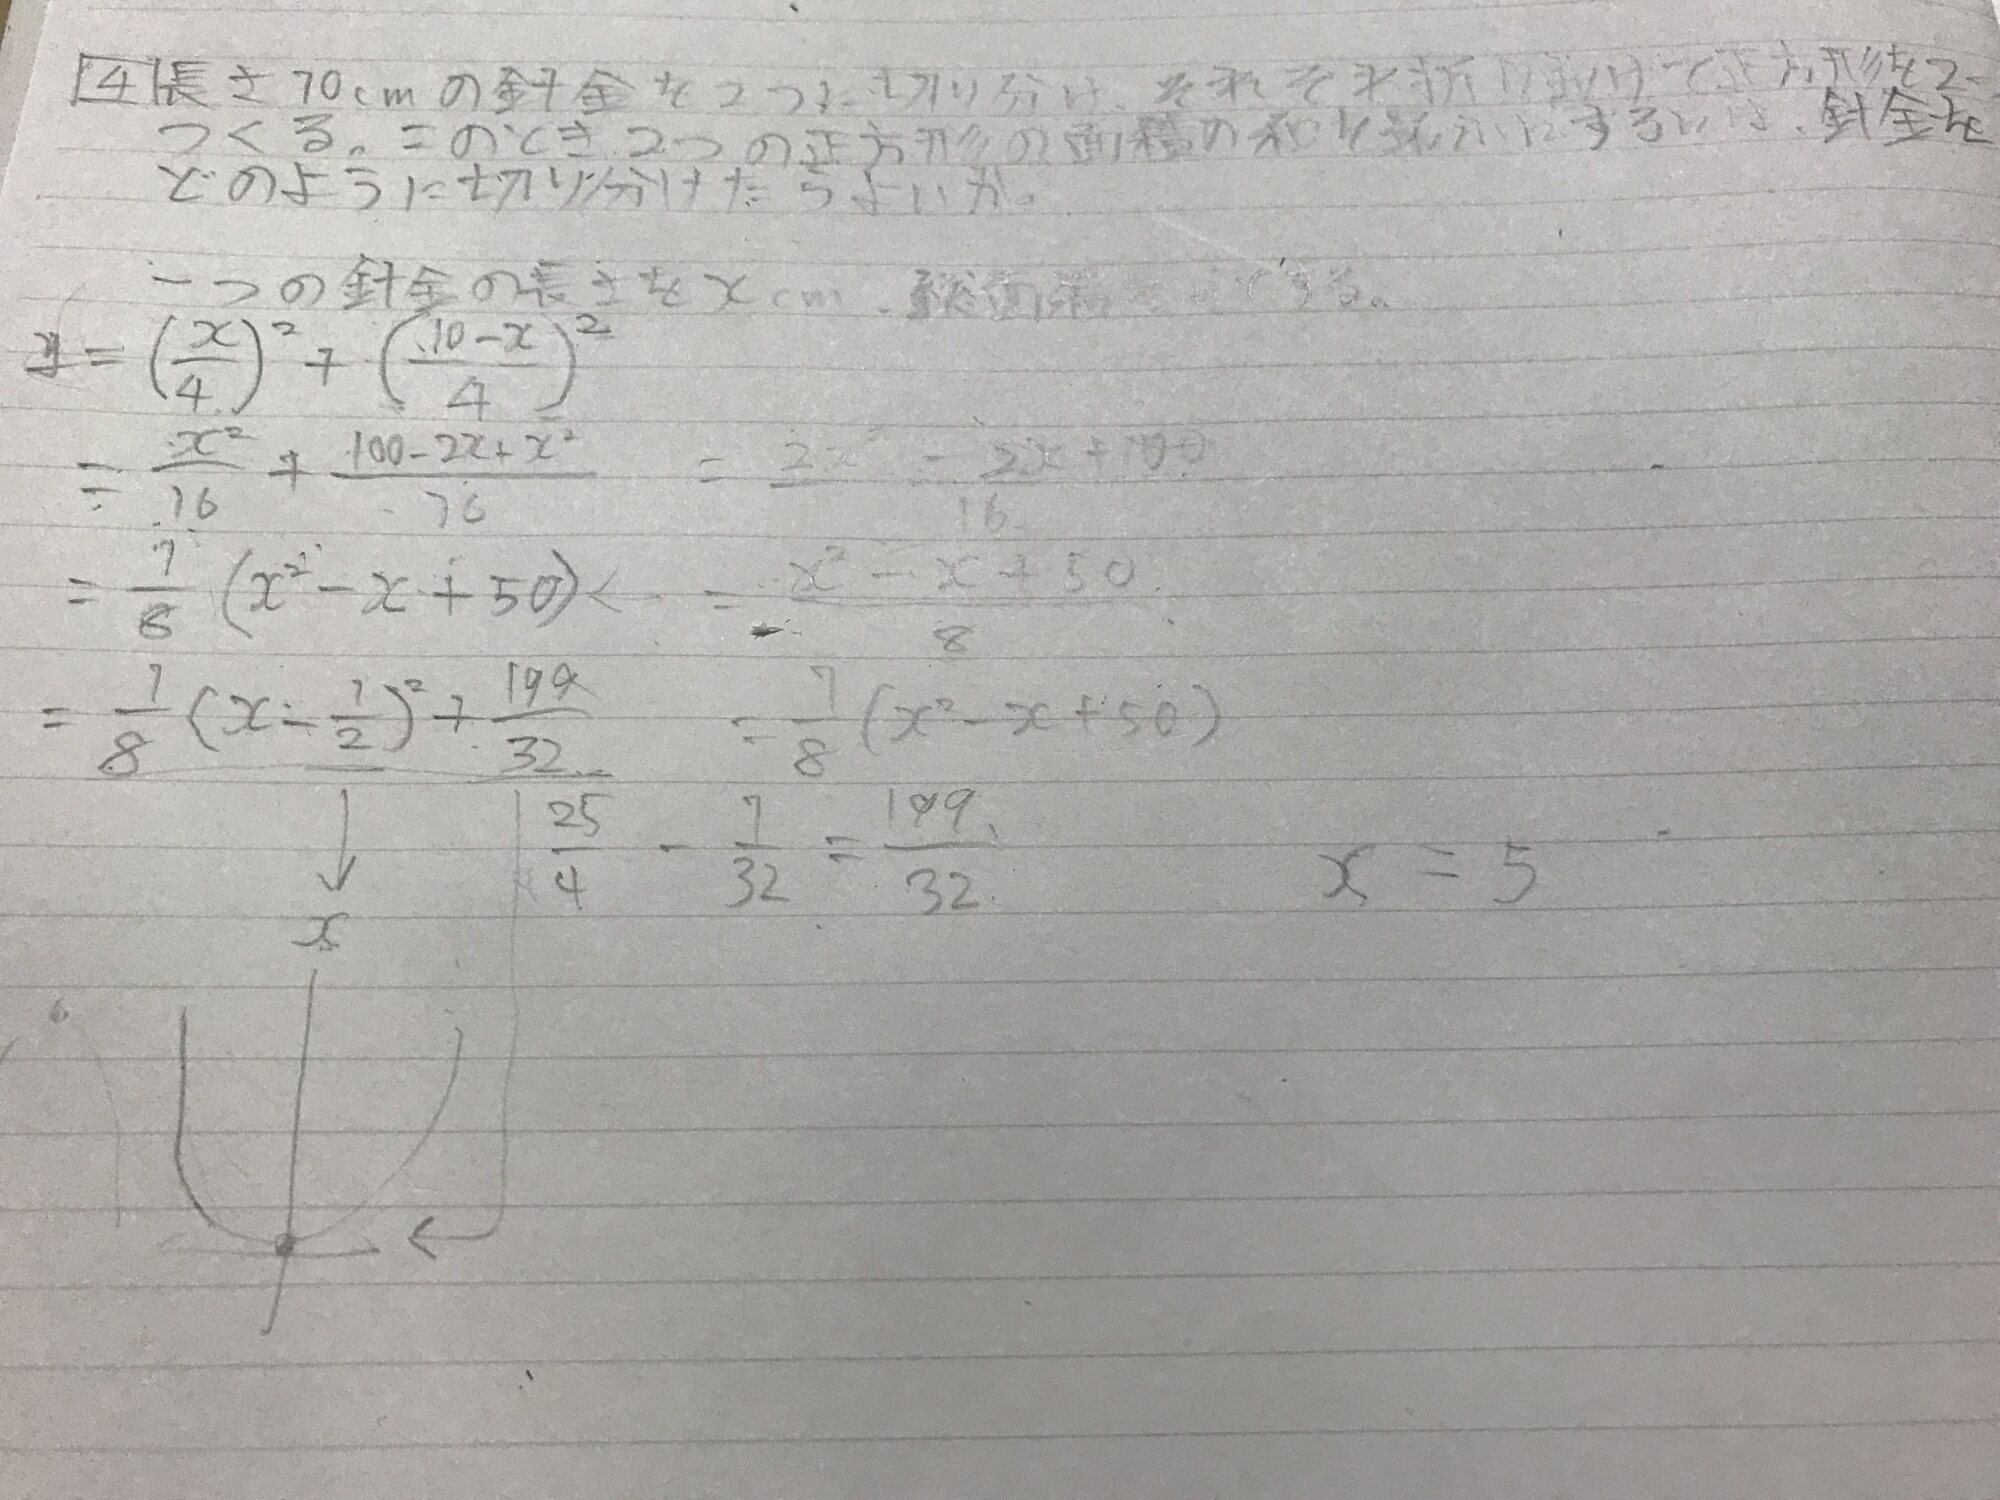 4 長さ10cmの針金を2つに切り分け、それぞれ折り曲げて正方形を2つ
つくる。このとき2つの正方形の面積の和を最小にするには、針金を
どのように切り分けたらよいか。
一つの針金の長さをx cm、総面積 とする。
y = (x/4)² + (10-x/4)²
= x²/16 + 100-2x+x²/16 = 2x²-2x+100/16
= 1/8 (x²-x+50) < = x²-x+50/8
= 1/8 (x-1/2)² + 199/32 = 1/8 (x²-x+50)
25/4 - 1/32 = 199/32 x = 5
x